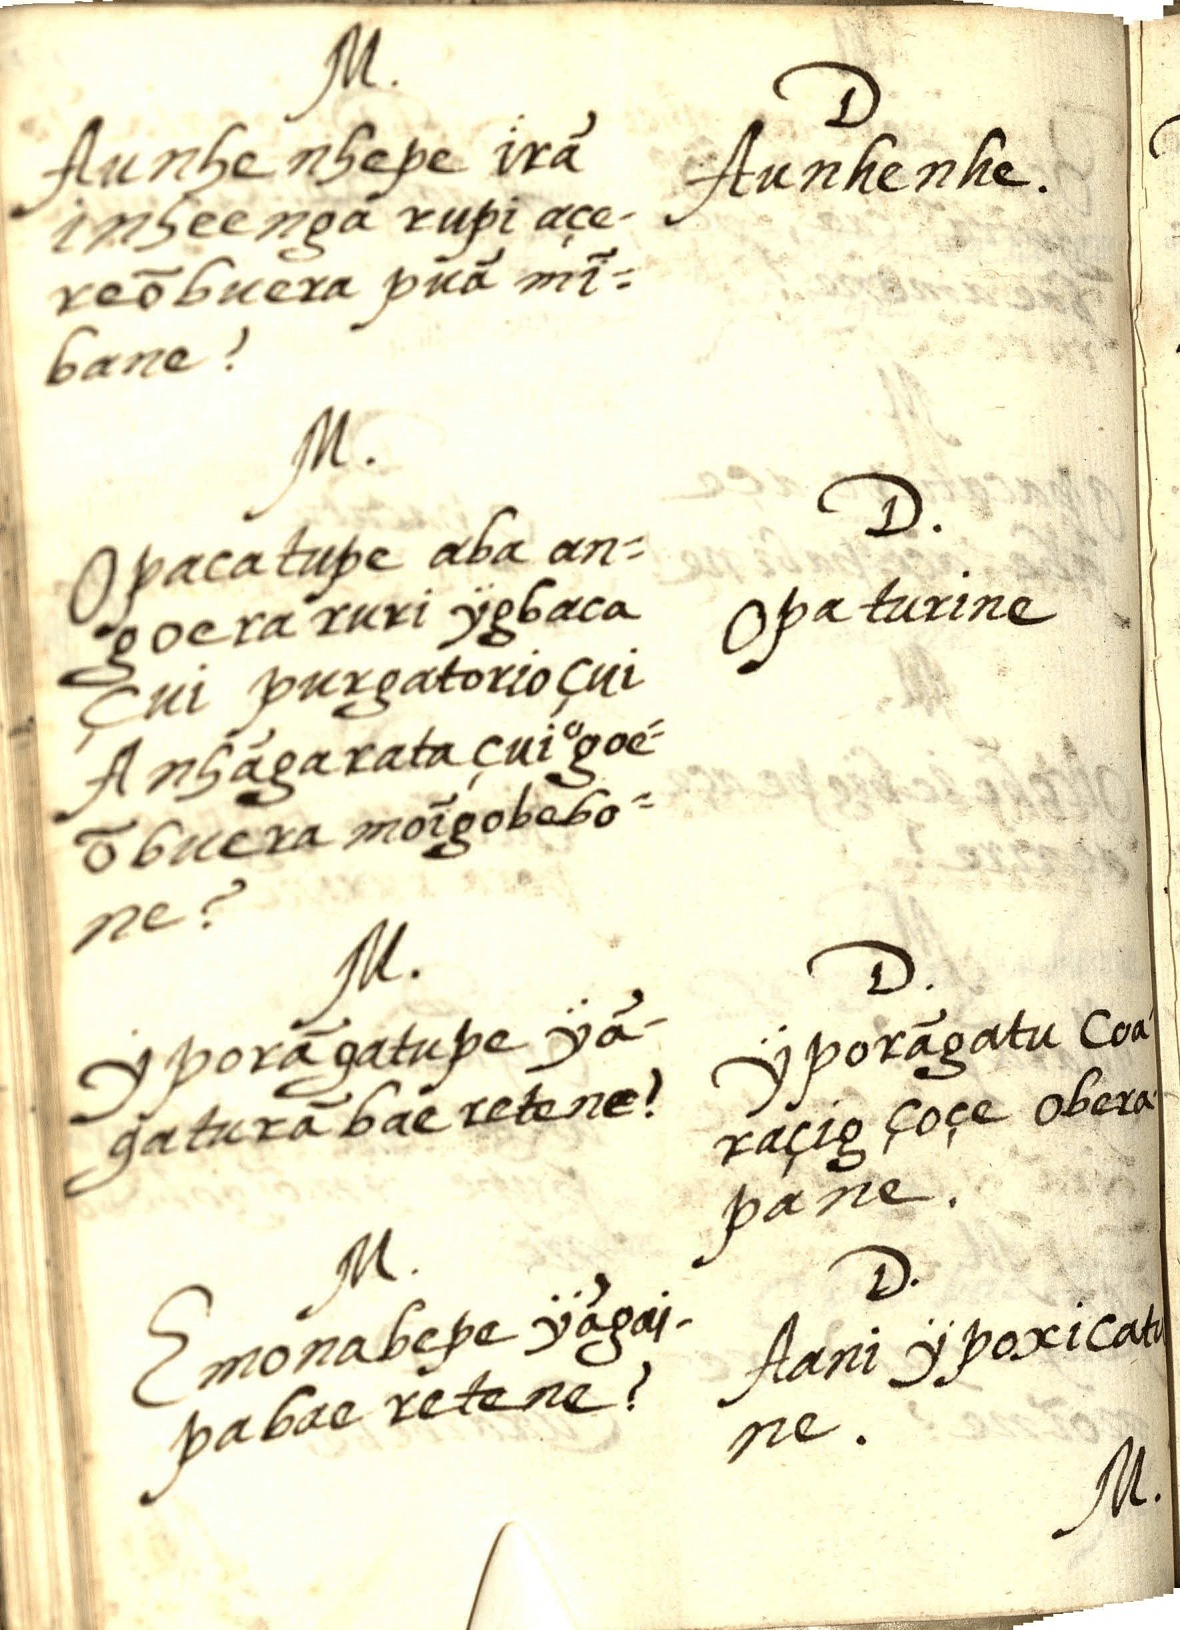 M.
Aunhenhepe irã
inheenga rupi açe-
reõbuera puã mĩ=
bane?
D
Aunhenhe.
M.
Opacatupe aba an=
goera ruri ÿgbaca
çui purgatorio çui
Anhãgarata çui ogoe=
õbuera moĩgobebo=
ne?
D.
Opa turine
M.
ÿporãgatupe ÿã-
gaturãbae retene?
D.
ÿporãgatu Coa
raçig çoçe obera
pane.
M.
Emonabepe ÿãgai-
pabae retene?
D.
Aani ÿpoxicatu
ne.
M.